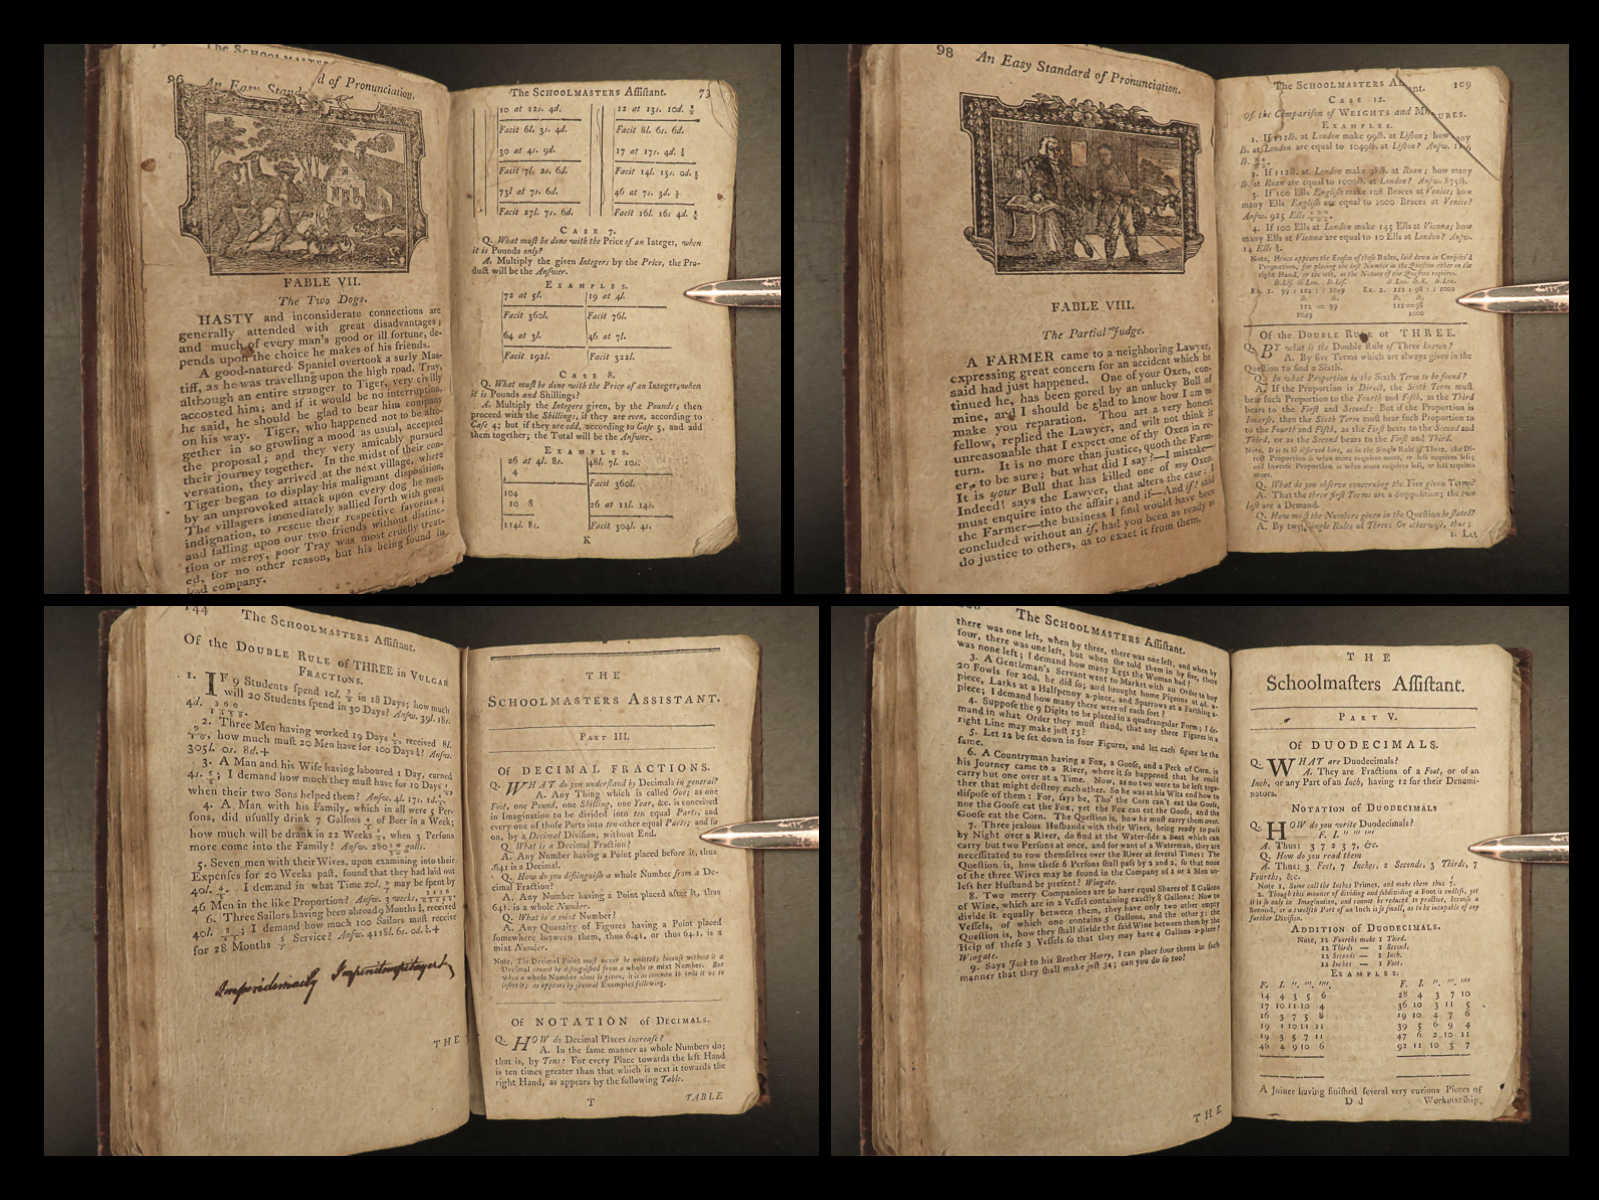 96 An Easy Stand d of Pronunciation.
FABLE VII.
The Two Dogs.
HASTY and inconsiderate connections are
generally attended with great disadvantages;
and much of every man's good or ill fortune, de-
pends upon the choice he makes of his friends.
A good-natured Spaniel overtook a surly Mas-
tiff, as he was travelling upon the high road. Tray,
although an entire stranger to Tiger, very civilly
accosted him; and if it would be no interruption,
he said, he should be glad to bear him company
on his way. Tiger, who happened not to be alto-
gether in so growling a mood as usual, accepted
the proposal; and they very amicably pursued
their journey together. In the midst of their con-
versation, they arrived at the next village, where
Tiger began to display his malignant disposition,
by an unprovoked attack upon every dog he met.
The villagers immediately sallied forth with great
indignation, to rescue their respective favorites;
and falling upon our two friends without distinc-
tion or mercy, poor Tray was most cruelly treat-
ed, for no other reason, but his being found in
bad company.
The SCHOOLMASTERS Aſſiſtant. 73
10 at 12s. 4d. 12 at 13s. 10d.
Facit 6l. 3s. 4d. Facit 8l. 6s. 6d.
30 at 4s. 9d. 17 at 17s. 4d.
Facit 7l. 2s. 6d. Facit 14l. 15s. 0d.
73l at 7s. 6d. 46 at 7s. 3d.
Facit 27l. 7s. 6d. Facit 16l. 16s. 4d.
CASE 7.
Q. What muſt be done with the Price of an Integer, when
it is Pounds only?
A. Multiply the given Integers by the Price, the Pro-
duct will be the Anſwer.
EXAMPLES.
72 at 5l. 19 at 4l.
Facit 360l. Facit 76l.
64 at 3l. 46 at 7l.
Facit 192l. Facit 322l.
CASE 8.
Q. What muſt be done with the Price of an Integer, when
it is Pounds and Shillings?
A. Multiply the Integers given, by the Pounds; then
proceed with the Shillings, if they are even, according to
Caſe 4; but if they are odd, according to Caſe 5, and add
them together; the Total will be the Anſwer.
EXAMPLES.
26 at 4l. 8s. 48l. 7l. 10s.
4 Facit 360l.
104
10 8 26 at 11l. 14s.
114l. 8s. Facit 304l. 4s.
K
98 An Easy Standard of Pronunciation.
FABLE VIII.
The Partial Judge.
A FARMER came to a neighboring Lawyer,
expressing great concern for an accident which he
said had just happened. One of your Oxen, con-
tinued he, has been gored by an unlucky Bull of
mine, and I should be glad to know how I am to
make you reparation. Thou art a very honest
fellow, replied the Lawyer, and wilt not think it
unreasonable that I expect one of thy Oxen in re-
turn. It is no more than justice, quoth the Farm-
er, to be sure; but what did I say?—I mistake—
It is your Bull that has killed one of my Oxen.
Indeed! says the Lawyer, that alters the case: I
must enquire into the affair; and if—And if! said
the Farmer—the business I find would have been
concluded without an if, had you been as ready to
do justice to others, as to exact it from them.
The SCHOOLMASTERS A ant. 109
CASE 12.
Of the Compariſon of WEIGHTS and ME URES.
EXAMPLES.
1. If 112lb. at London make 99lb. at Liſbon; how many
lb. at London are equal to 1049lb. at Liſbon?
2. If 112lb. at London make 98lb. at Roan; how many
lb. at Roan are equal to 1000lb. at London? Anſw. 875lb.
3. If 100 Ells Engliſh make 108 Braces at Venice; how
many Ells Engliſh are equal to 1000 Braces at Venice?
Anſw. 925 Ells
4. If 100 Ells at London make 145 Ells at Vienna; how
many Ells at Vienna are equal to 10 Ells at London? Anſw.
14 Ells
Note, Hence appears the Reaſon of theſe Rules, laid down in Conjoin'd
Proportion, for placing the laſt Number in the Queſtion either to the
right Hand, or the left, as the Nature of the Queſtion requires.
Of the DOUBLE RULE of THREE.
Q. BY what is the Double Rule of Three known?
A. By five Terms which are always given in the
Queſtion to find a Sixth.
Q. In what Proportion is the Sixth Term to be found?
A. If the Proportion is Direct, the Sixth Term muſt
bear ſuch Proportion to the Fourth and Fifth, as the Third
bears to the Firſt and Second: But if the Proportion is
Inverſe, then the Sixth Term muſt bear ſuch Proportion
to the Fourth and Fifth, as the Firſt bears to the Second and
Third, or as the Second bears to the Firſt and Third.
Q. What do you obſerve concerning the Five given Terms?
A. That the three firſt Terms are a Suppoſition; the two
laſt are a Demand.
Q. How muſt the Numbers given in the Queſtion be ſtated?
A. By two ſingle Rules of Three: Or otherwiſe, thus;
1. Let
144 The SCHOOLMASTERS Aſſiſtant.
Of the DOUBLE RULE of THREE in VULGAR
FRACTIONS.
1. IF 9 Students ſpend 10l. in 18 Days; how much
will 20 Students ſpend in 30 Days? Anſw. 39l. 18s.
4d.
2. Three Men having worked 19 Days, received 8l.
how much muſt 20 Men have for 100 Days? Anſw.
305l. 0s. 8d.+
3. A Man and his Wife having laboured 1 Day, earned
4s. ; I demand how much they muſt have for 10 Days,
when their two Sons helped them? Anſw. 4l. 17s. 1d.
4. A Man with his Family, which in all were 5 Per-
ſons, did uſually drink 7 Gallons of Beer in a Week;
how much will be drank in 22 Weeks, when 3 Perſons
more come into the Family? Anſw. 280 galls.
5. Seven men with their Wives, upon examining into their
Expenſes for 20 Weeks paſt, found that they had laid out
40l. I demand in what Time 20l. may be ſpent by
46 Men in the like Proportion? Anſw. 3 weeks,
6. Three Sailors having been abroad 9 Months, received
40l. ; I demand how much 100 Sailors muſt receive
for 28 Months Service? Anſw. 4118l. 6s. 0d. +
THE
THE
SCHOOLMASTERS ASSISTANT.
PART III.
Of DECIMAL FRACTIONS.
Q. WHAT do you underſtand by Decimals in general?
A. Any Thing which is called One; as one
Foot, one Pound, one Shilling, one Year, &c. is conceived
in Imagination to be divided into ten equal Parts; and
every one of thoſe Parts into ten other equal Parts; and ſo
on, by a Decimal Diviſion, without End.
Q. What is a Decimal Fraction?
A. Any Number having a Point placed before it, thus
.641 is a Decimal.
Q. How do you diſtinguiſh a whole Number from a De-
cimal Fraction?
A. Any Number having a Point placed after it, thus
641. is a whole Number.
Q. What is a mixt Number?
A. Any Quantity of Figures having a Point placed
ſomewhere between them, thus 6.41, or thus 64.1, is a
mixt Number.
Note, The Decimal Point muſt never be omitted; becauſe without it a
Decimal cannot be diſtinguiſhed from a whole or mixt Number. But
when a whole Number alone is given, it is as common to omit it as to
inſert it; as appears by ſeveral Examples following.
Of NOTATION of DECIMALS.
Q. HOW do Decimal Places increaſe?
A. In the ſame manner as whole Numbers do;
that is, by Tens: For every Place towards the left Hand
is ten times greater than that which is next it towards the
right Hand, as appears by the following Table.
T TABLE
The SCHOOLMASTERS Aſſiſtant.
there was one left, when by three, there was one left, and when by
four, there was one left, but when ſhe told them in by five, there
was none left; I demand how many Eggs the Woman had?
3. A Gentleman's Servant went to Market with an Order to buy
20 Fowls for 20d, he did ſo; and brought home Pigeons at 4d. a-
piece, Larks at a Halfpenny a-piece, and Sparrows at a Farthing a-
piece; I demand how many there were of each ſort?
4. Suppoſe the 9 Digits to be placed in a quadrangular Form; I de-
mand in what Order they muſt ſtand, that any three Figures in a
right Line may make juſt 15?
5. Let 12 be ſet down in four Figures, and let each figure be the
ſame.
6. A Countryman having a Fox, a Gooſe, and a Peck of Corn, in
his Journey came to a River, where it ſo happened that he could
carry but one over at a Time. Now, as no two were to be left toge-
ther that might deſtroy each other. So he was at his Wits end how to
diſpoſe of them: For, ſays he, Tho' the Corn can't eat the Gooſe,
nor the Gooſe eat the Fox, yet the Fox can eat the Gooſe, and the
Gooſe eat the Corn. The Queſtion is, how he muſt carry them over.
7. Three jealous Huſbands with their Wives, being ready to paſs
by Night over a River, do find at the Water-ſide a Boat which can
carry but two Perſons at once, and for want of a Waterman, they are
neceſſitated to row themſelves over the River at ſeveral Times: The
Queſtion is, how theſe 6 Perſons ſhall paſs by 2 and 2, ſo that none
of the three Wives may be found in the Company of 1 or 2 Men un-
leſs her Huſband be preſent? Wingate.
8. Two merry Companions are to have equal Shares of 8 Gallons
of Wine, which are in a Veſſel containing exactly 8 Gallons: Now to
divide it equally between them, they have only two other empty
Veſſels, of which one contains 5 Gallons, and the other 3: the
Queſtion is, how they ſhall divide the ſaid Wine between them by the
Help of theſe 3 Veſſels ſo that they may have 4 Gallons a-piece?
Wingate.
9. Says Jack to his Brother Harry, I can place four threes in ſuch
manner that they ſhall make juſt 34; can you do ſo too?
THE
THE
Schoolmaſters Aſſiſtant.
PART V.
Of DUODECIMALS.
Q. WHAT are Duodecimals?
A. They are Fractions of a Foot, or of an
Inch, or any Part of an Inch, having 12 for their Denomi-
nators.
NOTATION OF DUODECIMALS
Q. HOW do you write Duodecimals?
F. I. '' ''' ''''
A. Thus: 3 7 2 3 7, &c.
Q. How do you read them
A. Thus: 3 Feet, 7 Inches, 2 Seconds, 3 Thirds, 7
Fourths, &c.
Note 1. Some call the Inches Primes, and make them thus 7.
2. Though this manner of dividing and ſubdividing a Foot is endleſs, yet
it is ſo only in Imagination, and cannot be reduced to practice, becauſe a
Second, or a twelfth Part of an Inch is ſo ſmall, as to be incapable of any
further Diviſion.
ADDITION OF DUODECIMALS.
Note, 12 Fourths make 1 Third.
12 Thirds — 1 Second.
12 Seconds — 1 Inch.
12 Inches — 1 Foot.
EXAMPLES.
F. I. '' ''' '''' F. I. '' ''' ''''
14 4 3 5 6 28 4 3 7 10
17 10 11 10 4 36 10 3 11 5
16 3 7 5 8 19 10 4 7 6
19 1 10 11 11 39 5 6 9 4
19 3 5 7 11 47 6 2 10 11
46 4 9 10 6 92 11 10 3 7
A Joiner having finiſhed ſeveral very curious Pieces of
D d Workmanſhip,